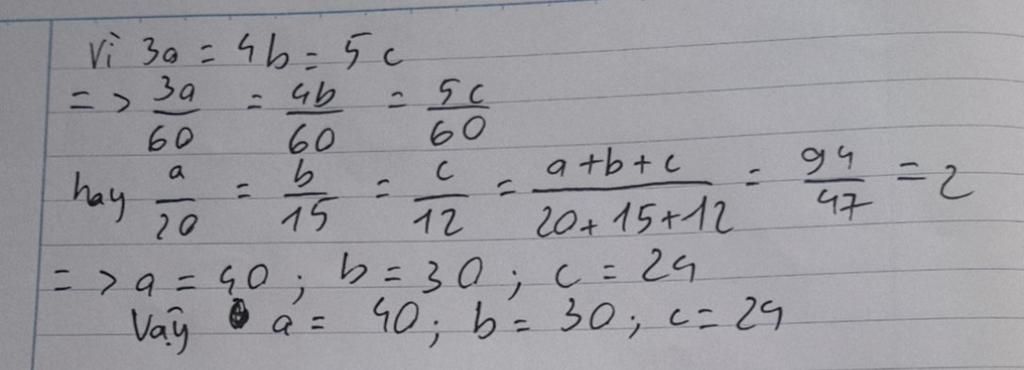 Vì 3a = 4b = 5c
=> 3a/60 = 4b/60 = 5c/60
hay a/20 = b/15 = c/12 = a+b+c/20+15+12 = 94/47 = 2
=> a = 40; b = 30; c = 24
Vậy a = 40; b = 30; c = 24